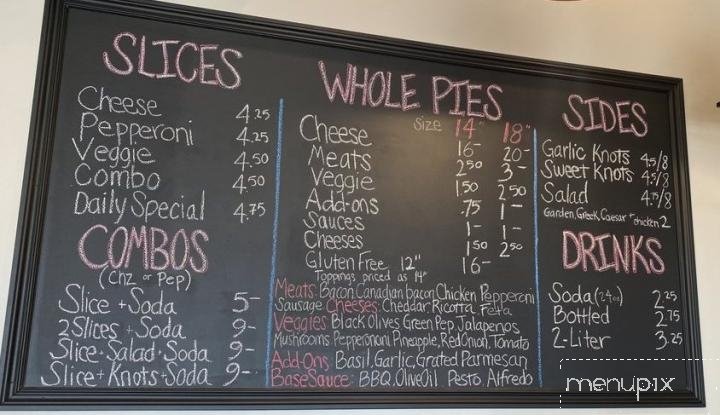 SLICES
Cheese 4.25
Pepperoni 4.25
Veggie 4.50
Combo 4.50
Daily Special 4.75
COMBOS
(Chz or Pep)
Slice + Soda 5-
2 Slices + Soda 9-
Slice + Salad + Soda 9-
Slice + Knots + Soda 9-
WHOLE PIES
Size 14" 18"
Cheese 16- 20-
Meats 2.50 3-
Veggie 1.50 2.50
Add-ons .75 1-
Sauces 1- 1-
Cheeses 1.50 2.50
Gluten Free 12" 16-
Toppings priced as 14"
Meats: Bacon Canadian bacon Chicken Pepperoni
Sausage Cheeses: Cheddar Ricotta Feta
Veggies Black Olives Green Pep, Jalapenos
Mushrooms Pepperoncini, Pineapple, Red Onion, Tomato
Add-Ons: Basil, Garlic, Grated Parmesan
Base Sauce: BBQ, Olive Oil Pesto Alfredo
SIDES
Garlic Knots 4.5/8
Sweet Knots 4.5/8
Salad 4.75/8
Garden, Greek, Caesar + chicken 2
DRINKS
Soda (24oz) 2.25
Bottled 2.75
2-Liter 3.25
menupix